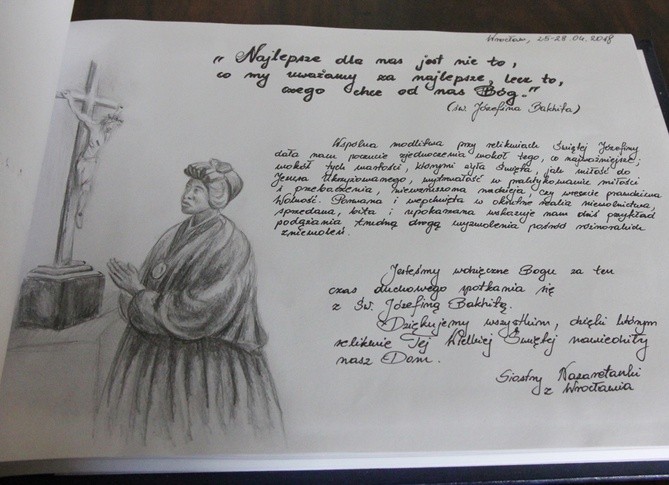 Wrocław, 25-28.04.2018
„Najlepsze dla nas jest nie to,
co my uważamy za najlepsze, lecz to,
czego chce od nas Bóg.”
(św. Józefina Bakhita)
Wspólna modlitwa przy relikwiach Świętej Józefiny
dała nam poczucie zjednoczenia wokół tego, co najważniejsze;
wokół tych wartości, którymi żyła Święta, jak miłość do
Jezusa Ukrzyżowanego, wytrwałość w praktykowaniu miłości
i przebaczenia, niewzruszona nadzieja, czy wreszcie prawdziwa
Wolność. Porwana i wepchnięta w okrutne realia niewolnictwa,
sprzedana, bita i upokarzana wskazuje nam dziś przykład
podążania trudną drogą wyzwolenia pośród rozmaitych
zniewoleń.
Jesteśmy wdzięczne Bogu za ten
czas duchowego spotkania się
z Św. Józefiną Bakhitą.
Dziękujemy wszystkim, dzięki którym
relikwie Tej Wielkiej Świętej nawiedziły
nasz Dom.
Siostry Nazaretanki
z Wrocławia